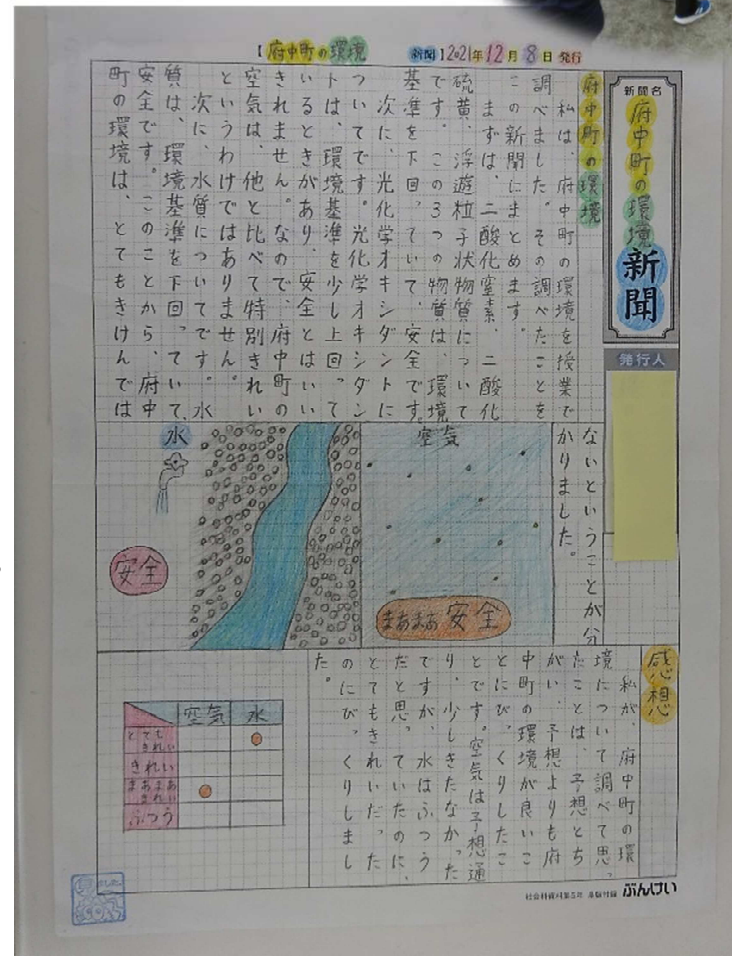 【府中町の環境 新聞】2021年12月8日発行
新聞名
府中町の環境新聞
発行人
府中町の環境
私は、府中町の環境を授業で
調べました。その調べたことを
この新聞にまとめます。
まずは、二酸化窒素、二酸化
硫黄、浮遊粒子状物質について
です。この3つの物質は、環境
基準を下回っていて、安全です。
次に、光化学オキシダントに
ついてです。光化学オキシダン
トは、環境基準を少し上回って
いるときがあり、安全とはいい
きれません。なので、府中町の
空気は、他と比べて特別きれい
というわけではありません。
次に、水質についてです。水
質は、環境基準を下回っていて、
安全です。このことから、府中
町の環境は、とてもきけんでは
ないということが分
かりました。
空気
まあまあ安全
水
安全
感想
私が、府中町の環
境について調べて思っ
たことは、予想とち
がい、予想よりも府
中町の環境が良いこ
とにびっくりしたこ
とです。空気は予想通
り、少しきたなかった
ですが、水はふつう
だと思っていたのに、
とてもきれいだった
のにびっくりしまし
た。
空気 水
とても
きれい
きれい
まあまあ
きれい
ふつう
ぶんけい